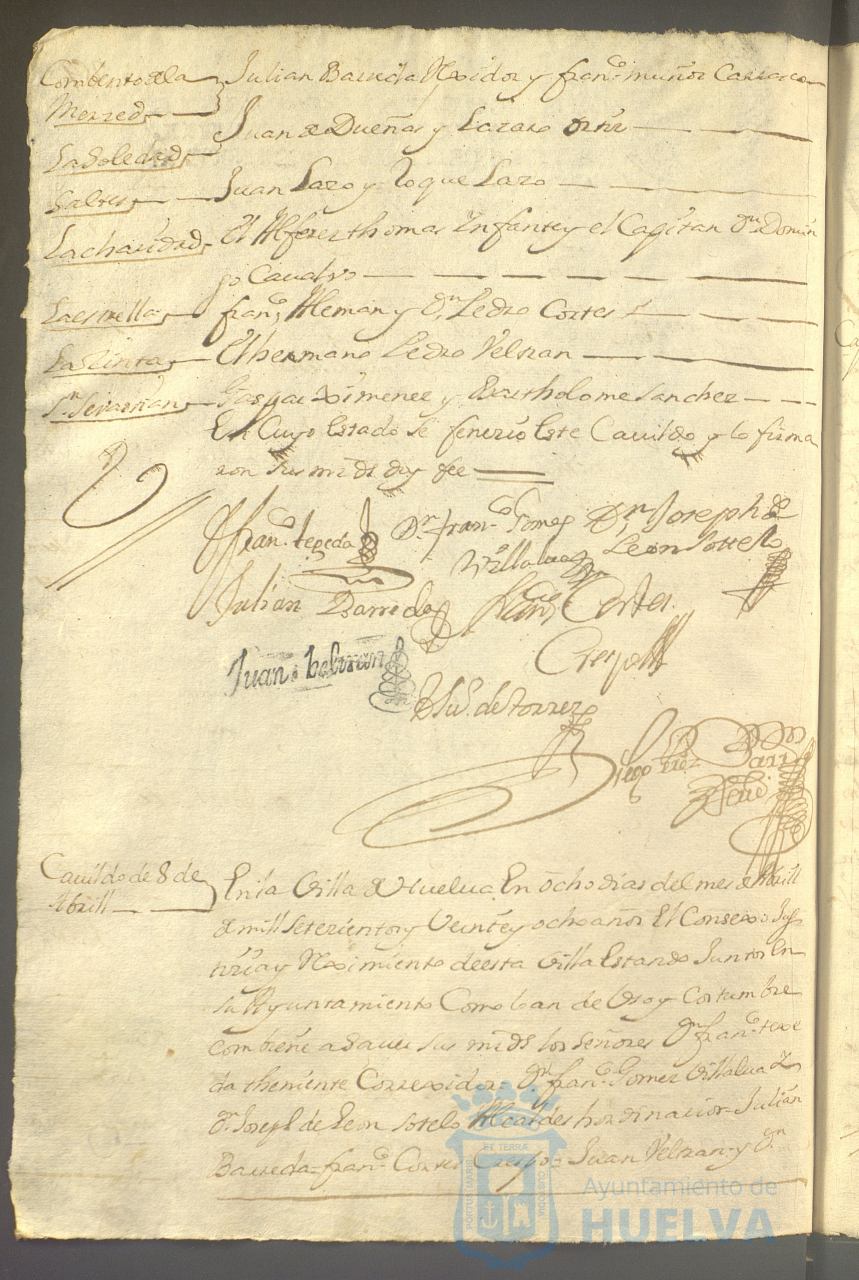 Combento de la Julian Barreda Rexidor y fran.co muñoz Carrasco
Merzed
Juan de Dueñas y Lazaro ortiz
La Soledad
Saltes Juan Lazo y Roque Lazo
La charidad El Alferez thomas Infante y el Capitan Dn. Domin
go Cavalro
La estrella fran.co Aleman y Dn. Pedro Cortes
La Zinta El hermano Pedro Velzan
Sn. Sevastian Gaspar Ximenez y Bartholome Sanchez
En Cuyo Estado se fenezio Este Cavildo y lo firma
ron sus mrds doy fee
Fran.co tegeda Dn. fran.co Gomez Dn. Joseph de
Villalva Leon Sotelo
Julian Barreda Fran.co Cortes
Crespo
Juan Belzran
de torres
Diego
Cavildo de 8 de
Abrill
En la Villa de Huelva En ocho dias del mes de Abrill
de mill setezientos y Veinte y ocho años El Consexo Jus
tizia y Reximiento de esta Villa Estando Juntos En
su Ayuntamiento Como lo an de Uso y Costumbre
combiene a saver sus mrds los señores Dn. fran.co texe
da theniente Correxidor = Dn. fran.co Gomez Villalva
Dn. Joseph de Leon Sotelo Alcaldes hordinarios = Julian
Barreda = fran.co Cortes Crespo = Juan Velzan = y Dn.
ET TERRAE
PORTUS MARIS
CUSTODIA
Ayuntamiento de
HUELVA